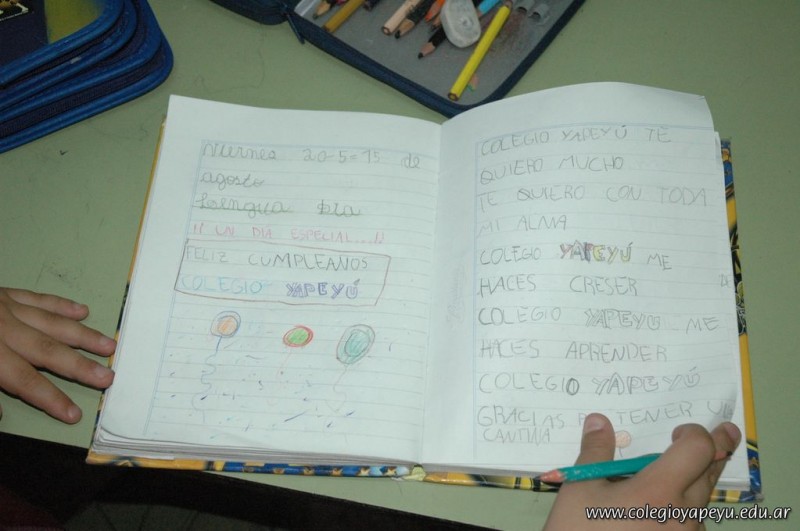 Viernes 20-5=15 de
agosto
Lengua
!! UN DIA ESPECIAL...!!
FELIZ CUMPLEAÑOS
COLEGIO YAPEYÚ
COLEGIO YAPEYÚ TE
QUIERO MUCHO
TE QUIERO CON TODA
MI ALMA
COLEGIO YAPEYÚ ME
HACES CRESER
COLEGIO YAPEYU ME
HACES APRENDER
COLEGIO YAPEYÚ
GRACIAS TENER
CANTINA
www.colegioyapeyu.edu.ar